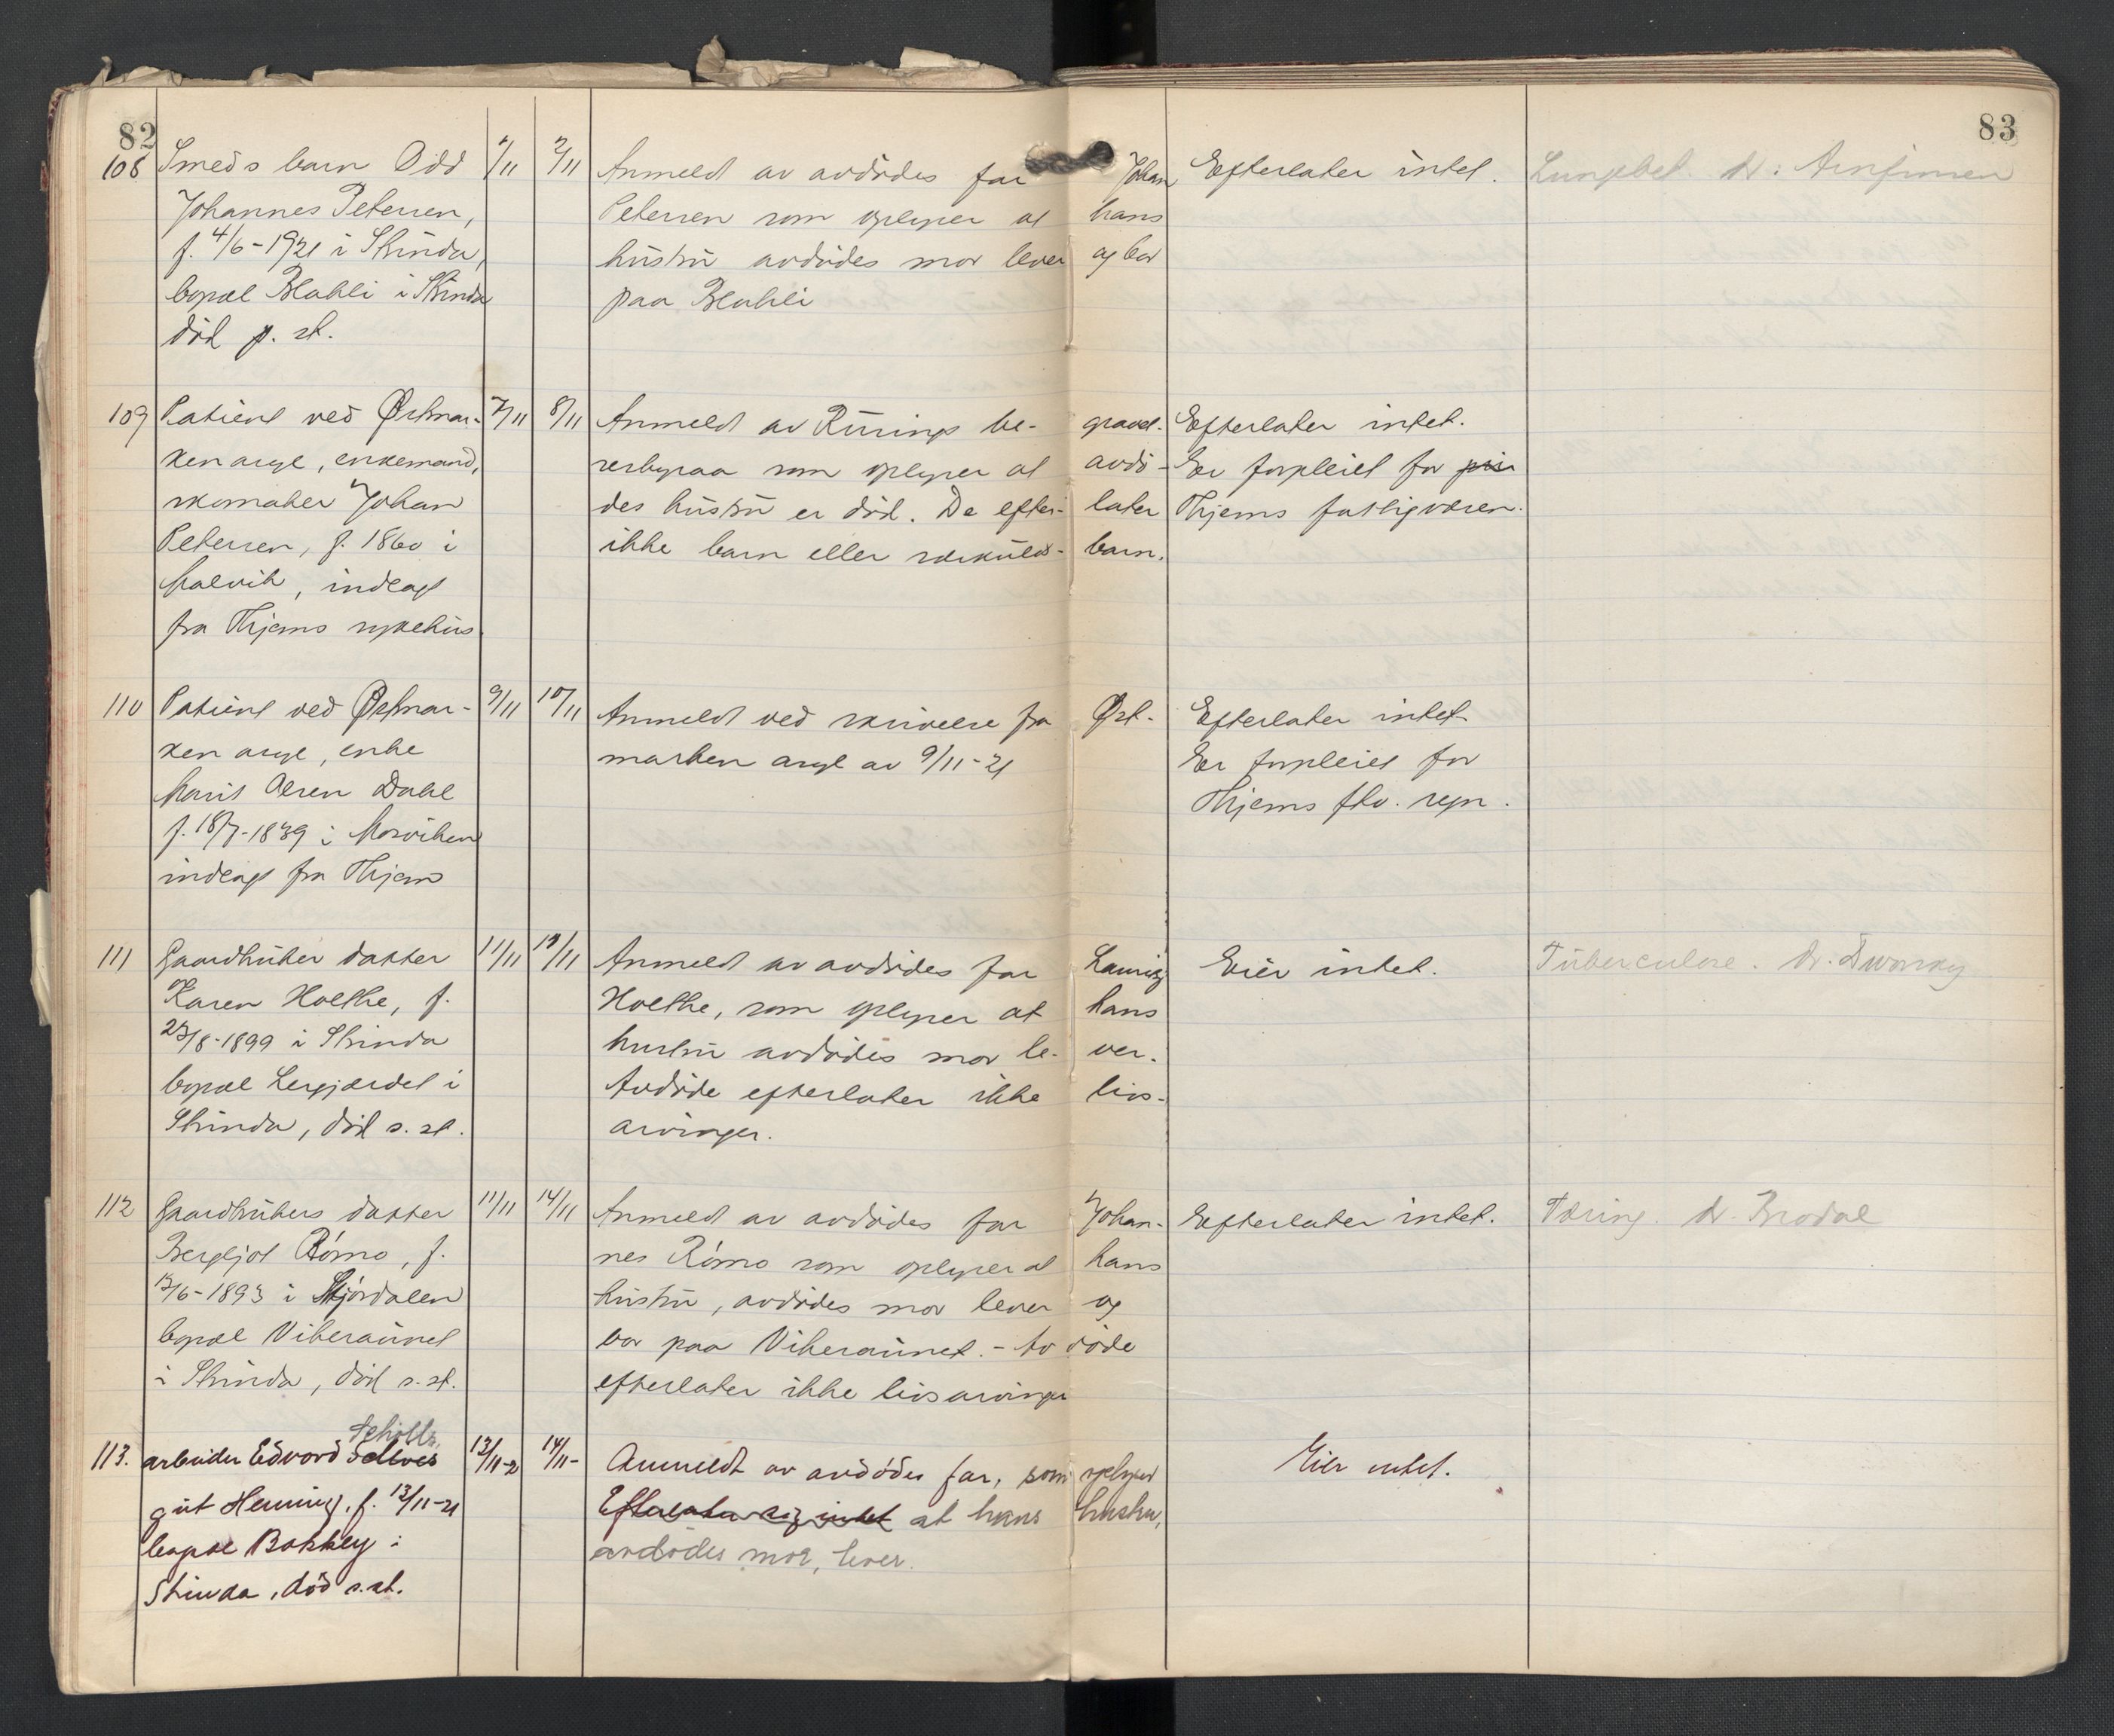 82
83
108 Smeds barn Odd 2/11 2/11 Anmeldt av avdødes far Johan Efterlater intet. Lungebet. dr. Arnfinsen
Johannes Petersen, Petersen som oplyser at hans
f. 4/6-1921 i Strinda, hustru avdødes mor lever og bor
bopæl Blakli i Strinda paa Blakli
død p. st.
109 Patient ved Østmar- 7/11 8/11 Anmeldt av Rürings be- gravel- Efterlater intet.
ken asyl, enkemand, sesbyraa som oplyser at avdø- Er forpleiet for
skomaker Johan des hustru er død. De efter- later Thjems fattigvæsen.
Petersen, f. 1860 i ikke barn eller særkulds- barn.
Malvik, indlagt
fra Thjems sykehus
110 Patient ved Østmar- 9/11 10/11 Anmeldt ved skrivelse fra Øst- Efterlater intet
ken asyl, enke marken asyl av 9/11-21 Er forpleiet for
Marit Olsen Dahl Thjems fkv. regn.
f. 18/7-1839 i Mosviken
indlagt fra Thjem
111 Gaardbruker datter 11/11 12/11 Anmeldt av avdødes far Lauritz Eier intet. Tuberculose. dr. Dworsky
Karen Hoethe, f. Hoethe, som oplyser at hans
23/8-1899 i Strinda hustru avdødes mor le- ver.
bopæl Lergjærdet i Avdøde efterlater ikke livs-
Strinda, død s. st. arvinger.
112 Gaardbrukers datter 11/11 14/11 Anmeldt av avdødes far Johan- Efterlater intet. Tæring. dr. Brodal
Bergljot Rømo, f. nes Rømo som oplyser at hans
12/6-1893 i Stjørdalen hustru, avdødes mor lever og
bopæl Vikeraunet bor paa Vikeraunet. - Av døde
i Strinda, død s. st. efterlater ikke livsarvinger
Schötts
113. arbeider Edvard Selives 13/11-2 14/11- Anmeldt av avdødes far, som oplyser Eier intet.
gut Henning, f. 13/11-21 Efterlater sig intet at hans hustru,
bopæl Bakkly i avdødes mor, lever.
Strinda, død s. st.